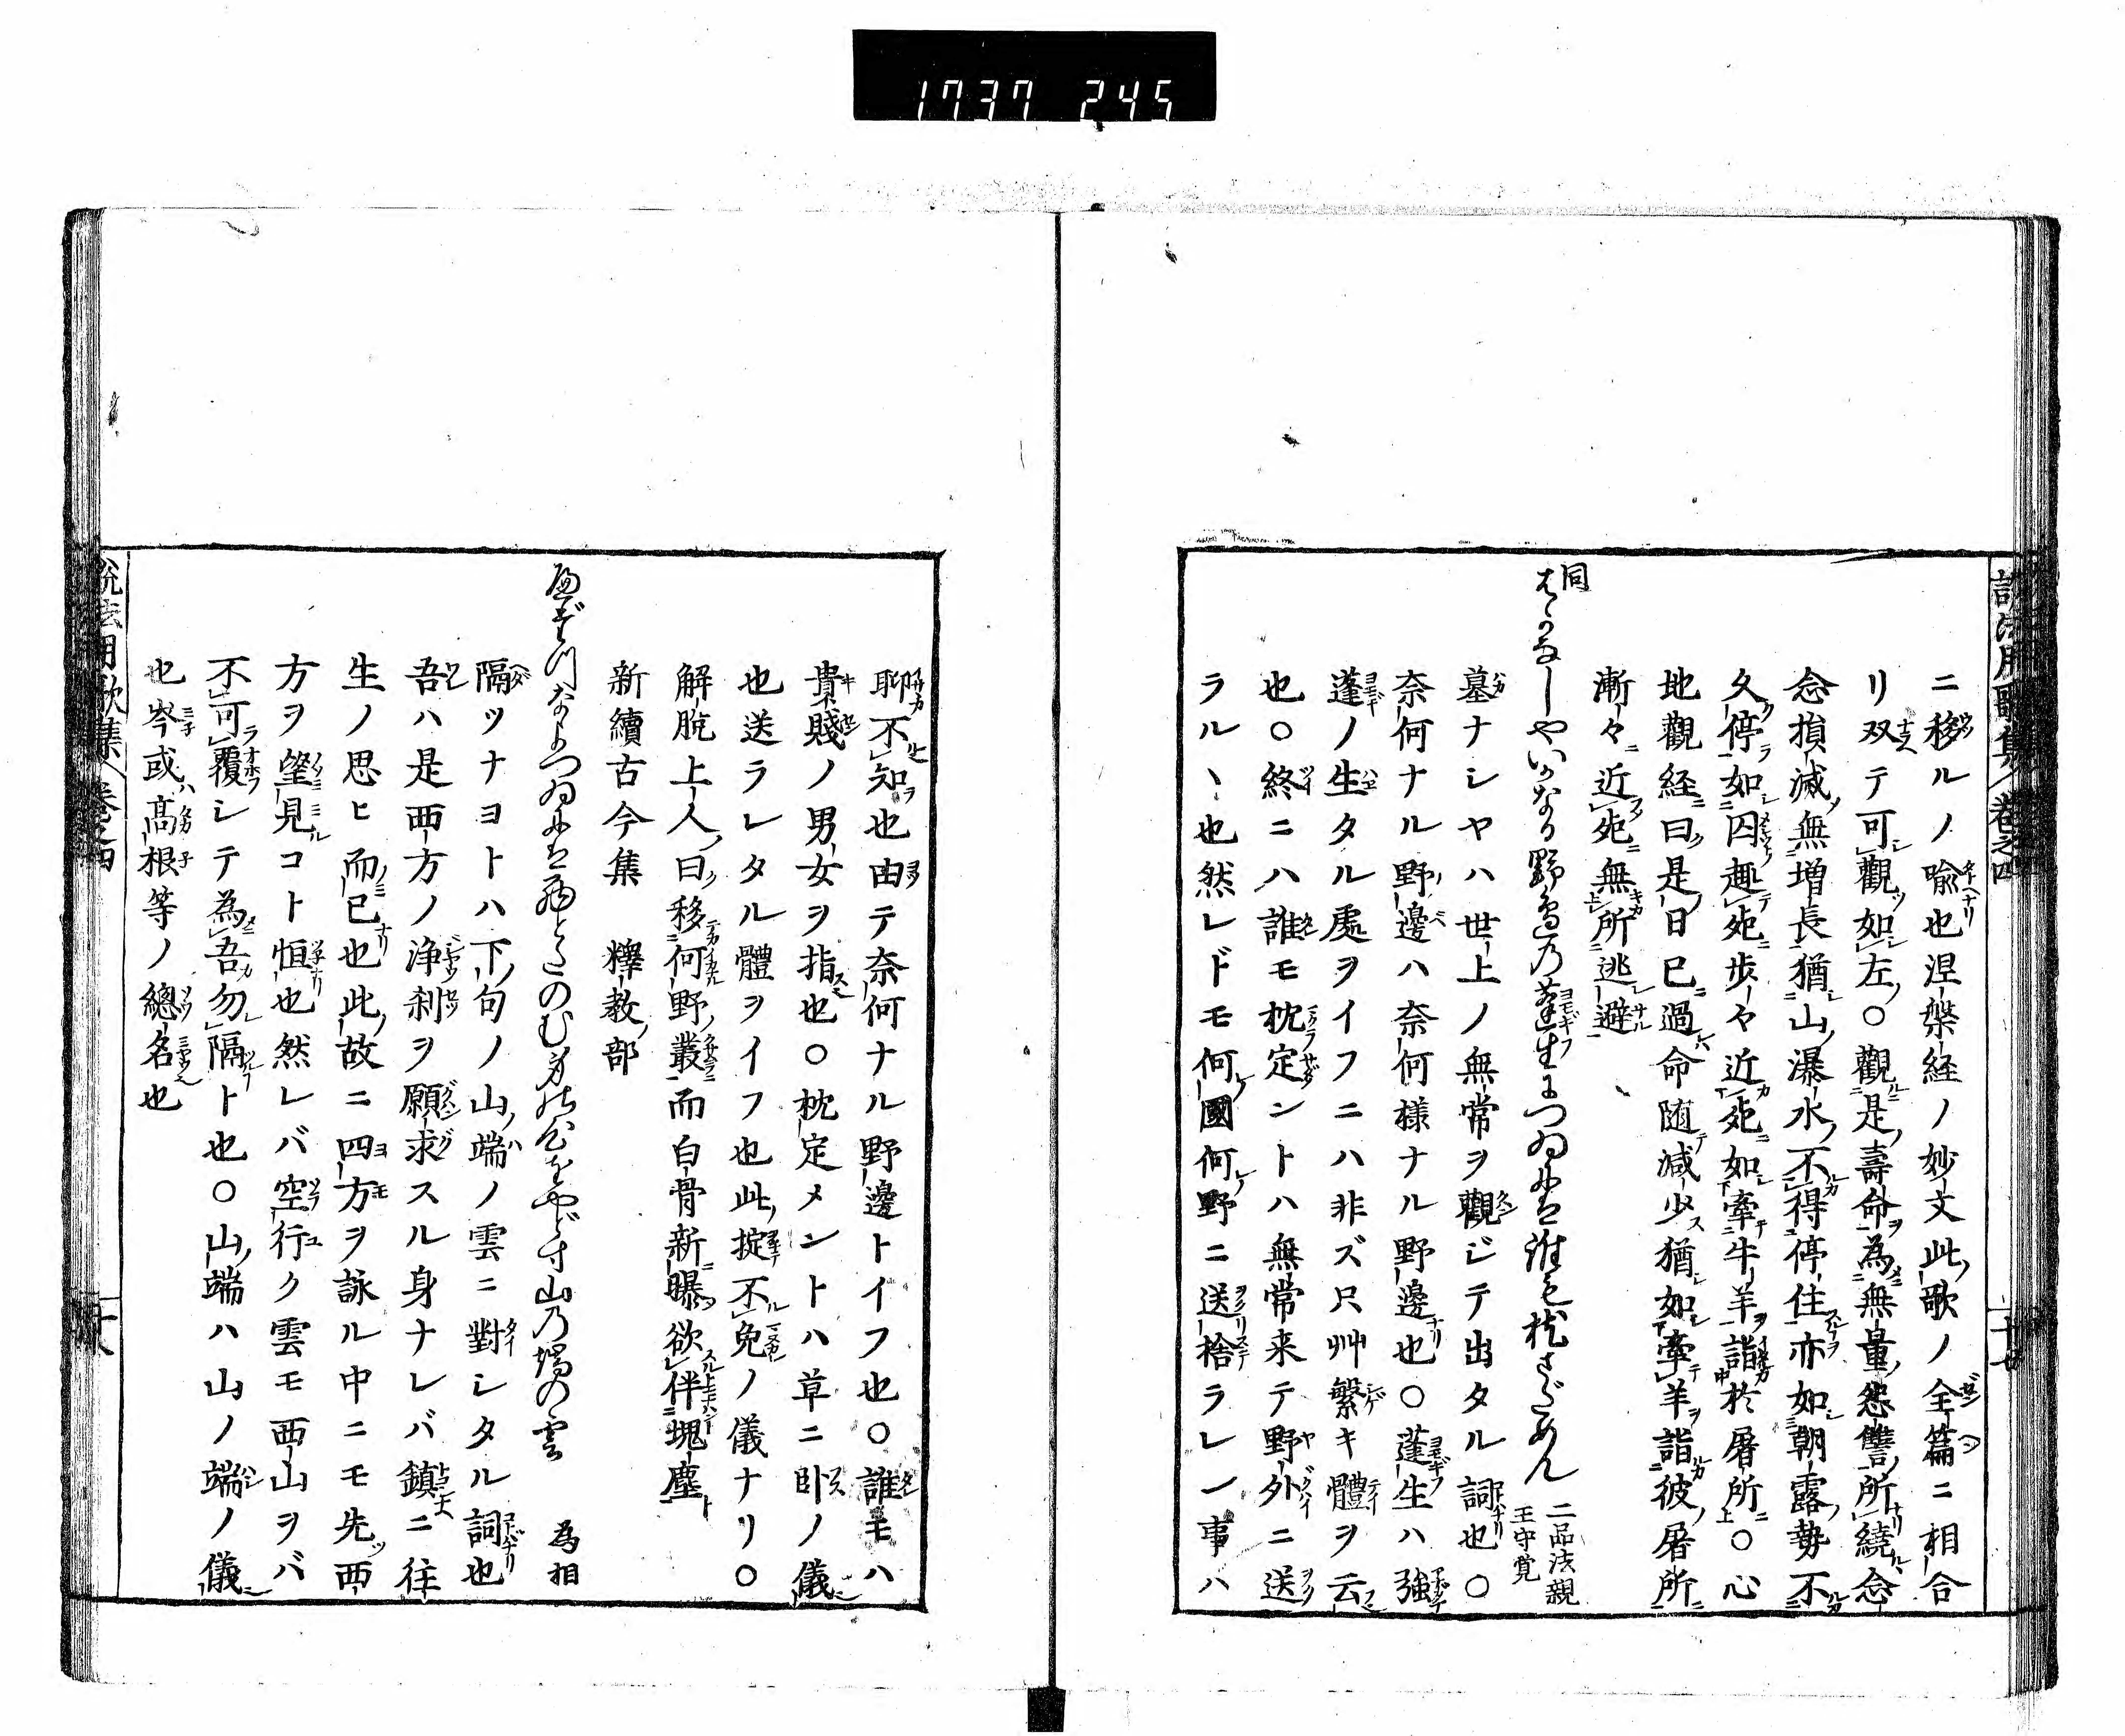 1737 245
ニ移ルノ喩也涅槃経ノ妙文此歌ノ全篇ニ相合
リ双テ可觀如左○觀是壽命為無量怨讐所繞念
念損減無増長猶山瀑水不得停住亦如朝露勢不
久停如囚趣死歩々近死如牽牛羊詣於屠所○心
地觀経曰是日已過命随減少猶如牽羊詣彼屠所
漸々近死無所逃避
同
はかなしやいかなる野邉の蓬生につゐには誰も枕さだめん
二品法親
王守覚
墓ナシヤハ世上ノ無常ヲ觀ジテ出タル詞也○
奈何ナル野邊ハ奈何様ナル野邊也○蓬生ハ強
蓬ノ生タル處ヲイフニハ非ズ只艸繁キ體ヲ云
也○終ニハ誰モ枕定ントハ無常来テ野外ニ送
ラルヽ也然レドモ何國何野ニ送捨ラレン事ハ
聊不知也由テ奈何ナル野邊トイフ也○誰モハ
貴賤ノ男女ヲ指也○枕定メントハ草ニ卧ノ儀
也送ラレタル體ヲイフ也此掟不免ノ儀ナリ○
解脱上人曰移何野叢而白骨新曝欲伴塊塵
新續古今集　釋教部
へだつなよつゐには西とたのむ身の心をやどす山の端の雲
為相
隔ツナヨトハ下句ノ山端ノ雲ニ對シタル詞也
吾ハ是西方ノ浄刹ヲ願求スル身ナレバ鎮ニ往
生ノ思ヒ而已也此故ニ四方ヲ詠ル中ニモ先西
方ヲ望見コト恒也然レバ空行ク雲モ西山ヲバ
不可覆シテ為吾勿隔ト也○山端ハ山ノ端ノ儀
也岑或髙根等ノ總名也
説法用歌集　巻之四